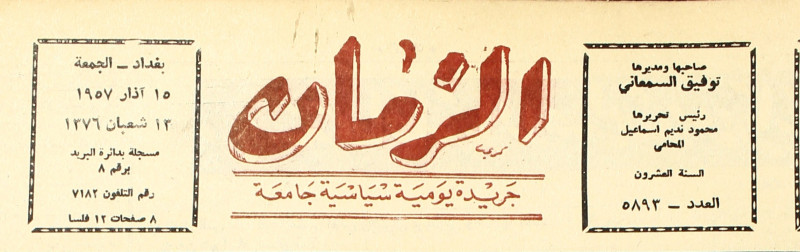 صاحبها ومديرها
توفيق السمعاني
رئيس تحريرها
محمود نديم اسماعيل
المحامي
السنة العشرون
العدد ــ ٥٨٩٣
الزمان
جريدة يومية سياسية جامعة
بغداد ــ الجمعة
١٥ آذار ١٩٥٧
١٣ شعبان ١٣٧٦
مسجلة بدائرة البريد
برقم ٨
رقم التلفون ٧١٨٢
٨ صفحات ١٢ فلسا